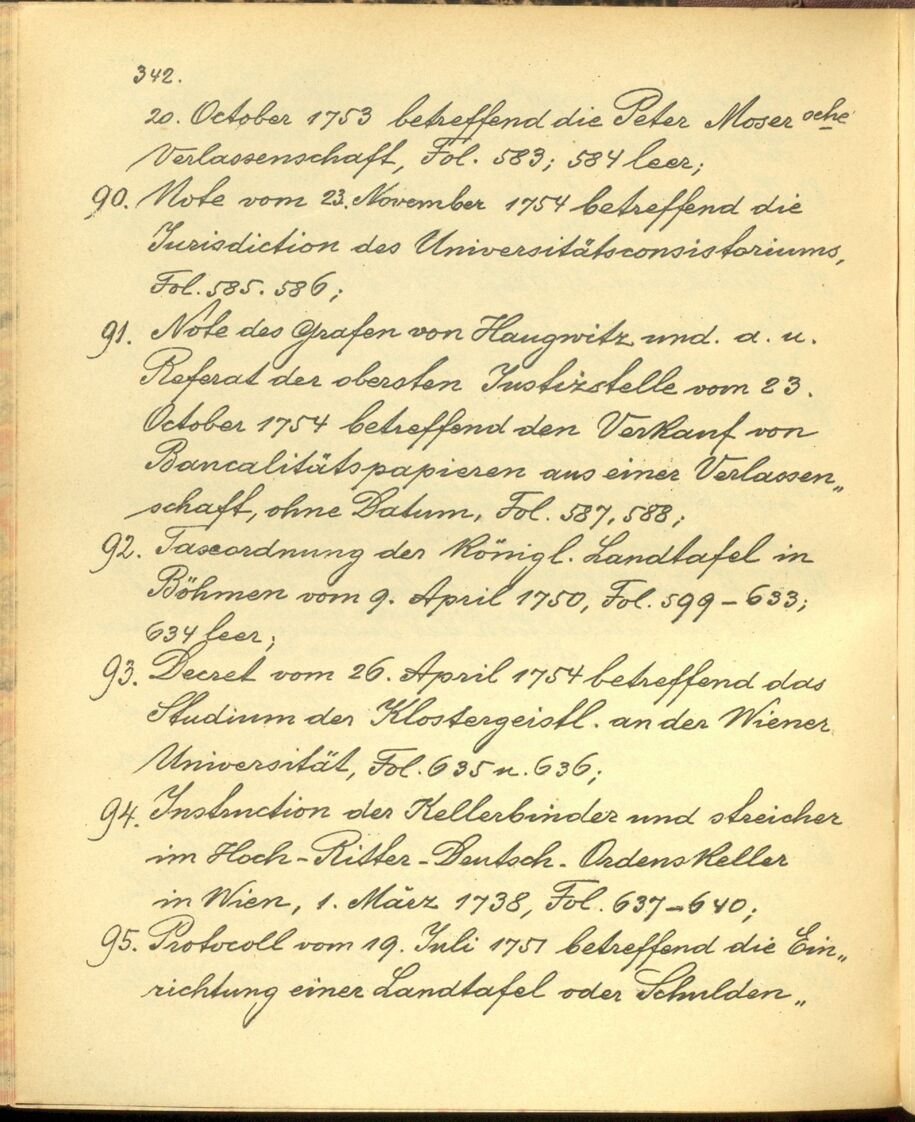 342.
20. October 1753 betreffend die Peter Moser sche
Verlassenschaft, Fol. 583; 584 leer;
90. Note vom 23. November 1754 betreffend die
Jurisdiction des Universitätsconsistoriums,
Fol. 585. 586;
91. Note des Grafen von Haugwitz und. a. u.
Referat der obersten Justizstelle vom 23.
October 1754 betreffend den Verkauf von
Bancalitätspapieren aus einer Verlassen„
schaft, ohne Datum, Fol. 587, 588;
92. Taxordnung der königl. Landtafel in
Böhmen vom 9. April 1750, Fol. 599 – 633;
634 leer;
93. Decret vom 26. April 1754 betreffend das
Studium der Klostergeistl. an der Wiener
Universität, Fol. 635 u. 636;
94. Instruction der Kellerbinder und streicher
im Hoch-Ritter-Deutsch-Ordenskeller
in Wien, 1. März 1738, Fol. 637–640;
95. Protocoll vom 19. Juli 1751 betreffend die Ein„
richtung einer Landtafel oder Schulden„